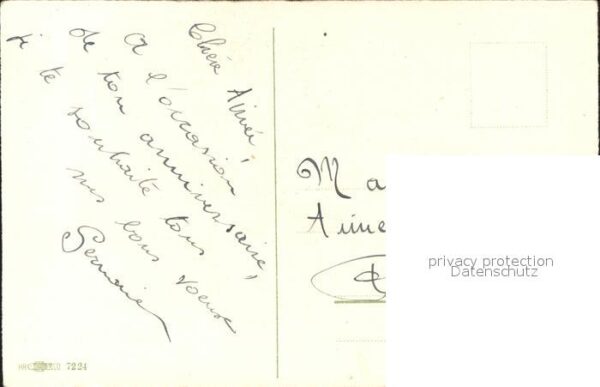 Chère Aimée,
A l'occasion
de ton anniversaire,
je te souhaite tous
mes bons voeux
Germaine
Ma
Aimé
privacy protection
Datenschutz
7224